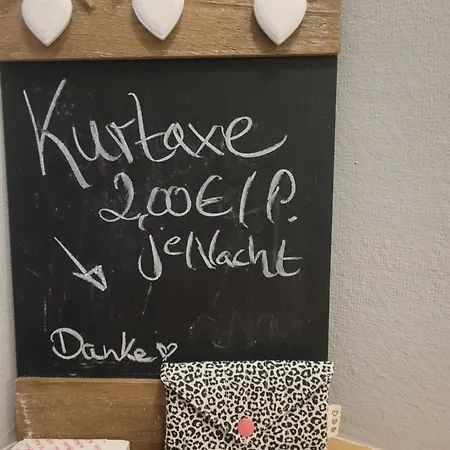 Kurtaxe
2,00€/P.
je Nacht
Danke